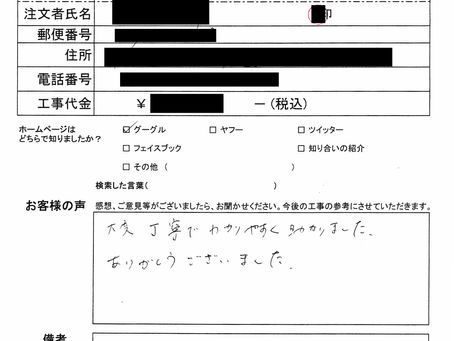 注文者氏名 印
郵便番号
住所
電話番号
工事代金 ¥ ー(税込)
ホームページは
どちらで知りましたか?
☑ グーグル □ ヤフー □ ツイッター
□ フェイスブック □ 知り合いの紹介
□ その他 ( )
検索した言葉( )
お客様の声 感想、ご意見等がございましたら、お聞かせください。今後の工事の参考にさせていただきます。
大変 丁寧で わかりやすく 助かりました。
ありがとうございました。
備考